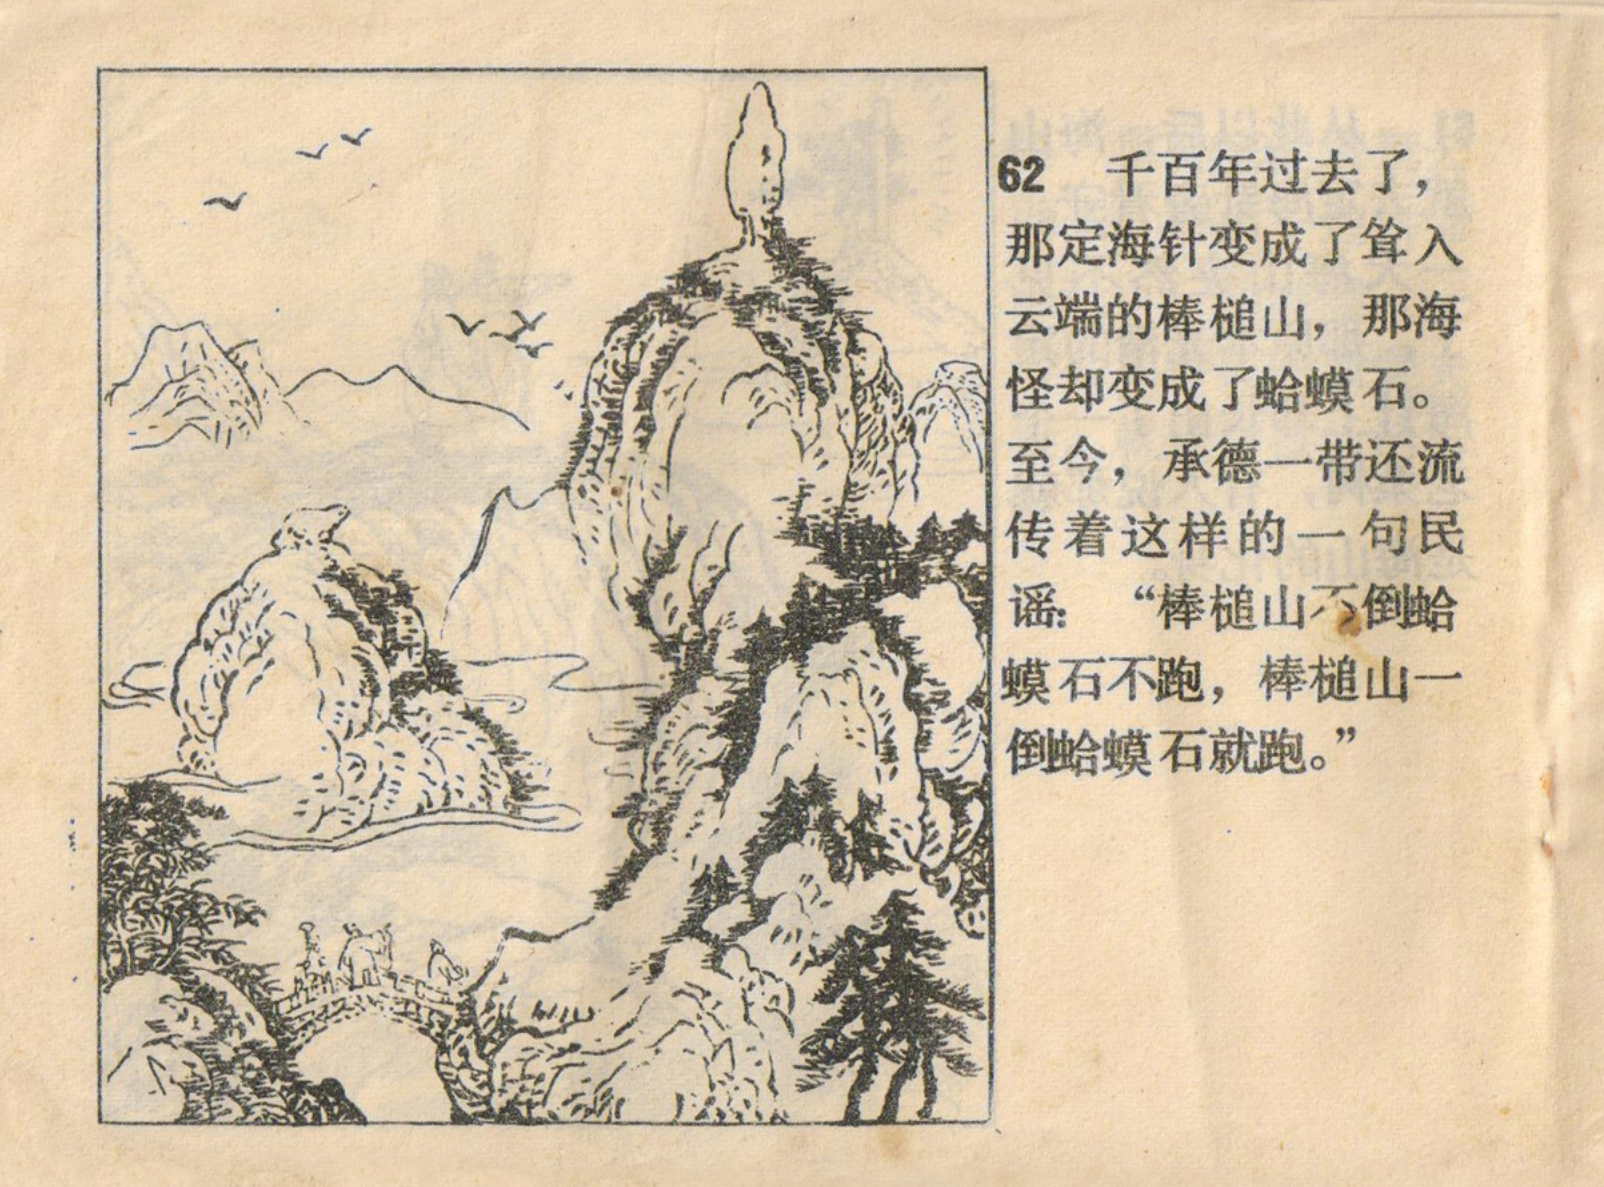 62 千百年过去了，
那定海针变成了耸入
云端的棒槌山，那海
怪却变成了蛤蟆石。
至今，承德一带还流
传着这样的一句民
谣：“棒槌山不倒蛤
蟆石不跑，棒槌山一
倒蛤蟆石就跑。”